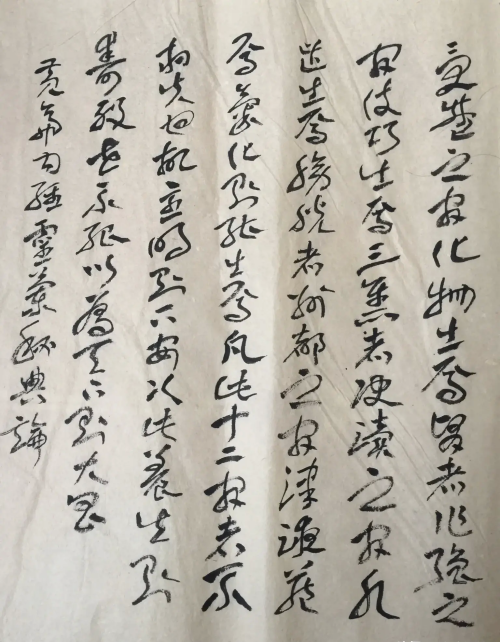 受盛之官化物出焉腎者作強之
官伎巧出焉三焦者決瀆之官水
道出焉膀胱者州都之官津液藏
焉氣化則能出焉凡此十二官者不
相失也故主明則下安以此養生則
壽歿世不殆以為天下則大昌
黃帝內經靈蘭秘典論